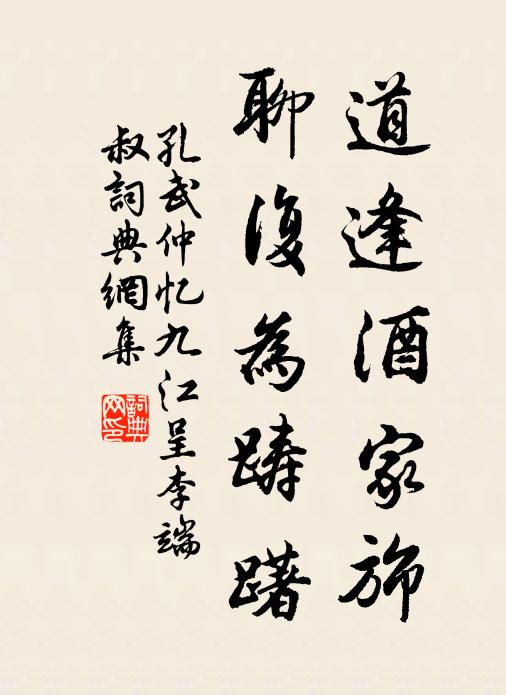 道逢酒家旆
聊復為踌躇
孔武仲忆九江呈李端
叔詞典網集
詞典网印